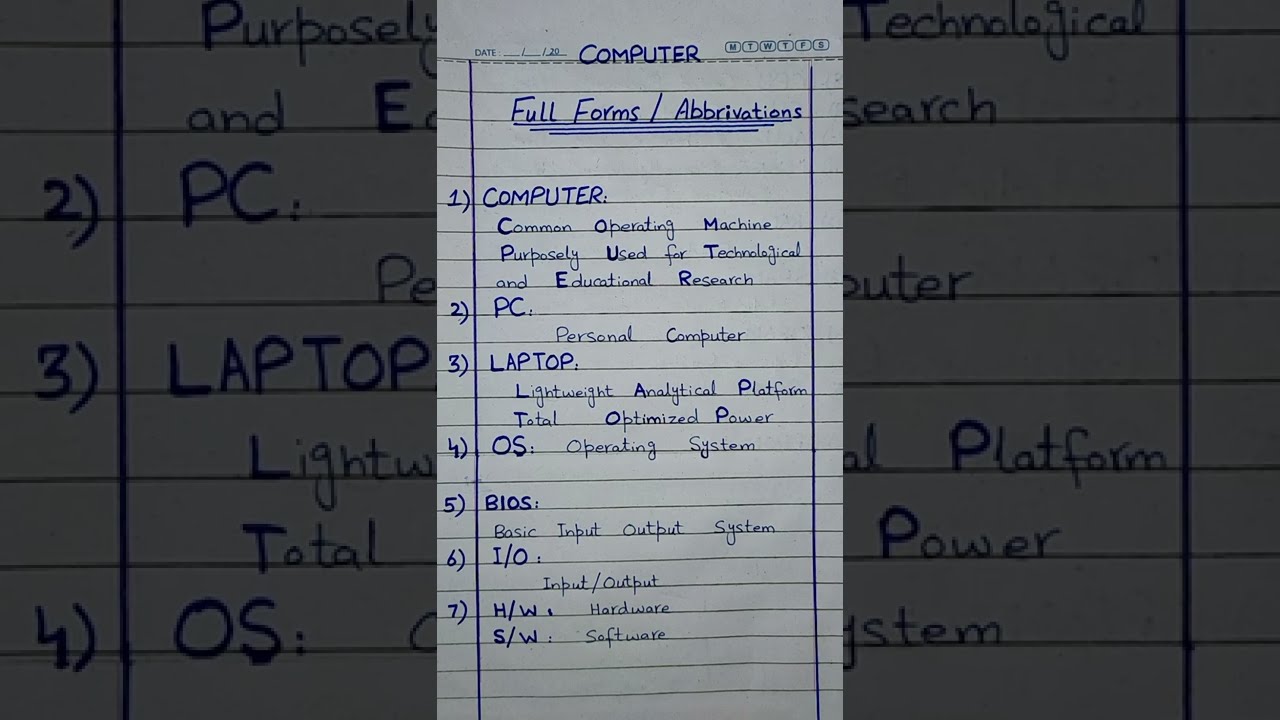 DATE: __/__/20__ COMPUTER M T W T F S
Full Forms / Abbrivations
1) COMPUTER:
Common Operating Machine
Purposely Used for Technological
and Educational Research
2) PC:
Personal Computer
3) LAPTOP:
Lightweight Analytical Platform
Total Optimized Power
4) OS: Operating System
5) BIOS:
Basic Input Output System
6) I/O:
Input/Output
7) H/W: Hardware
S/W: Software